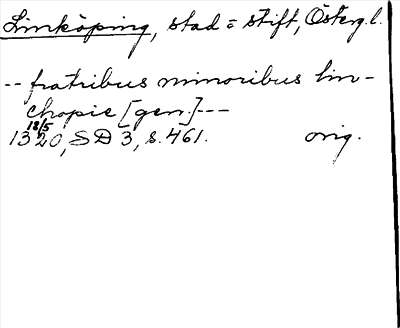 Linköping, stad = stift, Österg.l.
-- fratribus minoribus lin-
chopie [gen.] ---
18/5
1320, SD 3, s. 461. orig.